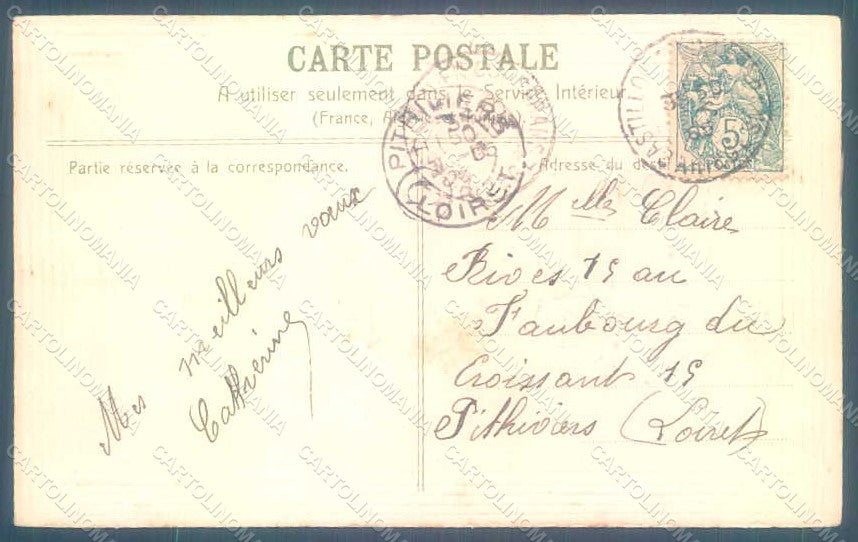 CARTE POSTALE
A utiliser seulement dans le Service Intérieur
(France, et
Partie réservée à la correspondance.
Adresse du
PITHIVIERS
LOIRET
5c
Mes meilleurs vœux
Catherine
Mlle Claire
Rives 15 au
Faubourg du
Croissant 15
Pithiviers (Loiret)
CARTOLINOMANIA